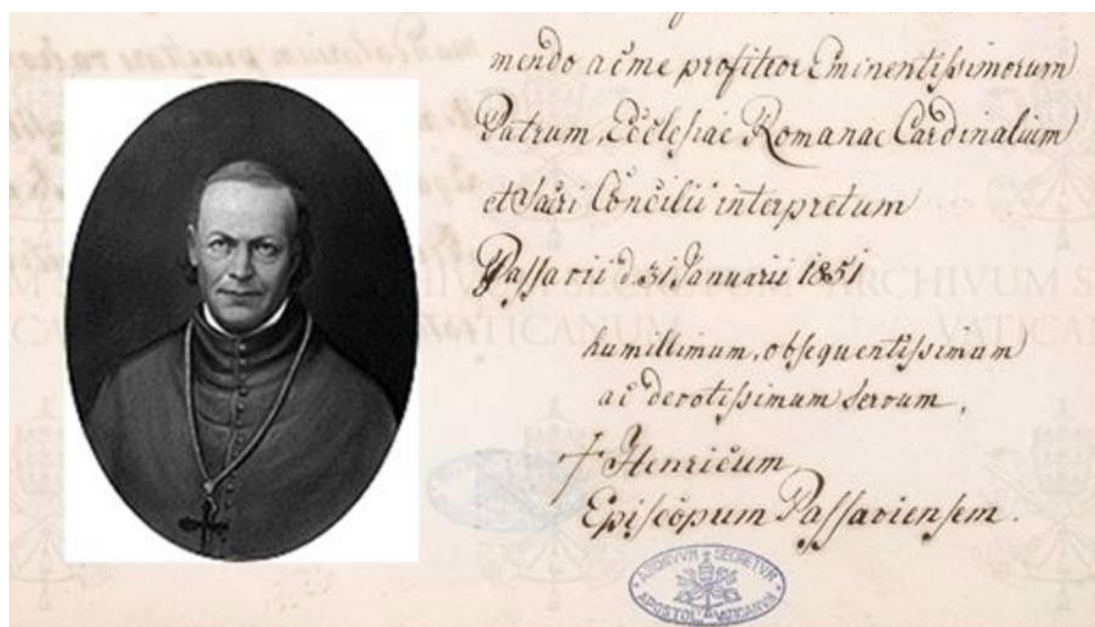 mendo ac me profiteor Eminentissimorum
Patrum, Ecclesiae Romanae Cardinalium
et Sacri Concilii interpretum
Passavii d. 31. Januarii 1851
humillimum, obsequentissimum
ac devotissimum servum,
† Henricum
Episcopum Passaviensem.
ARCHIVVM SECRETVM
APOSTOL. VATICANVM
ARCHIVUM S
VATICAN